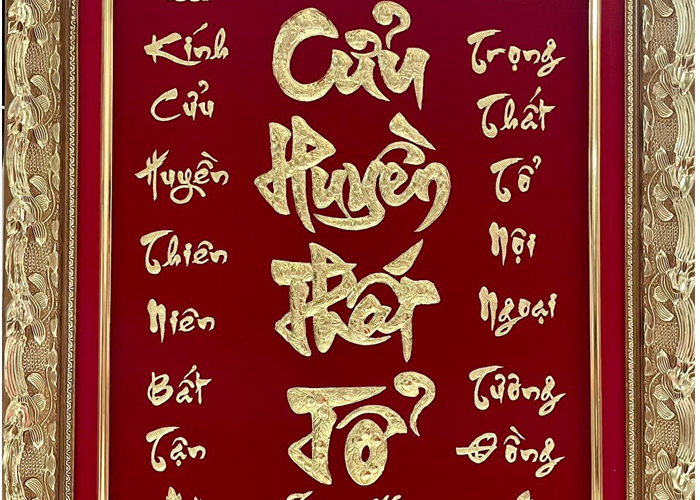 Kính
Cửu
Huyền
Thiên
Niên
Bất
Tận
Cửu
Huyền
Thất
Tổ
Trọng
Thất
Tổ
Nội
Ngoại
Tường
Đồng